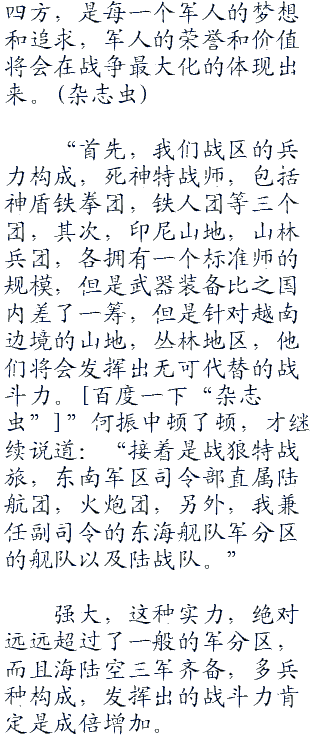 四方，是每一个军人的梦想
和追求，军人的荣誉和价值
将会在战争最大化的体现出
来。(杂志虫)
“首先，我们战区的兵
力构成，死神特战师，包括
神盾铁拳团，铁人团等三个
团，其次，印尼山地，山林
兵团，各拥有一个标准师的
规模，但是武器装备比之国
内差了一筹，但是针对越南
边境的山地，丛林地区，他
们将会发挥出无可代替的战
斗力。[百度一下“杂志
虫”]”何振中顿了顿，才继
续说道：“接着是战狼特战
旅，东南军区司令部直属陆
航团，火炮团，另外，我兼
任副司令的东海舰队军分区
的舰队以及陆战队。”
强大，这种实力，绝对
远远超过了一般的军分区，
而且海陆空三军齐备，多兵
种构成，发挥出的战斗力肯
定是成倍增加。